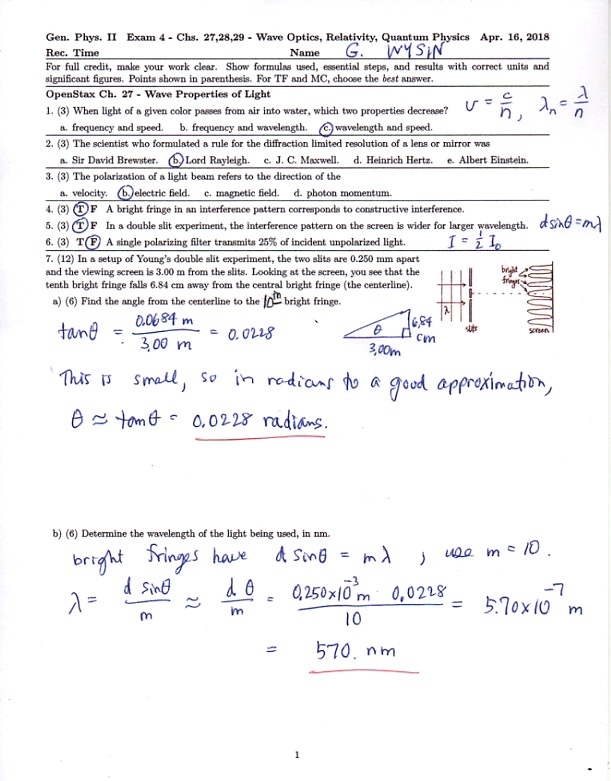 Gen. Phys. II Exam 4 - Chs. 27,28,29 - Wave Optics, Relativity, Quantum Physics Apr. 16, 2018
Rec. Time Name G. WYSIN
For full credit, make your work clear. Show formulas used, essential steps, and results with correct units and
significant figures. Points shown in parenthesis. For TF and MC, choose the best answer.
OpenStax Ch. 27 - Wave Properties of Light
1. (3) When light of a given color passes from air into water, which two properties decrease? v = c/n, λn = λ/n
a. frequency and speed. b. frequency and wavelength. c. wavelength and speed.
2. (3) The scientist who formulated a rule for the diffraction limited resolution of a lens or mirror was
a. Sir David Brewster. b. Lord Rayleigh. c. J. C. Maxwell. d. Heinrich Hertz. e. Albert Einstein.
3. (3) The polarization of a light beam refers to the direction of the
a. velocity. b. electric field. c. magnetic field. d. photon momentum.
4. (3) T F A bright fringe in an interference pattern corresponds to constructive interference.
5. (3) T F In a double slit experiment, the interference pattern on the screen is wider for larger wavelength. d sinθ = mλ
6. (3) T F A single polarizing filter transmits 25% of incident unpolarized light. I = 1/2 I0
7. (12) In a setup of Young's double slit experiment, the two slits are 0.250 mm apart
and the viewing screen is 3.00 m from the slits. Looking at the screen, you see that the
tenth bright fringe falls 6.84 cm away from the central bright fringe (the centerline).
bright
fringes
λ
slits screen
a) (6) Find the angle from the centerline to the 10th bright fringe.
tanθ = 0.0684 m / 3.00 m = 0.0228
θ 6.84 cm
3.00m
This is small, so in radians to a good approximation,
θ ≈ tanθ = 0.0228 radians.
b) (6) Determine the wavelength of the light being used, in nm.
bright fringes have d sinθ = mλ , use m = 10.
λ = d sinθ / m ≈ d θ / m = 0.250×10⁻³m · 0.0228 / 10 = 5.70×10⁻⁷ m
= 570. nm
1